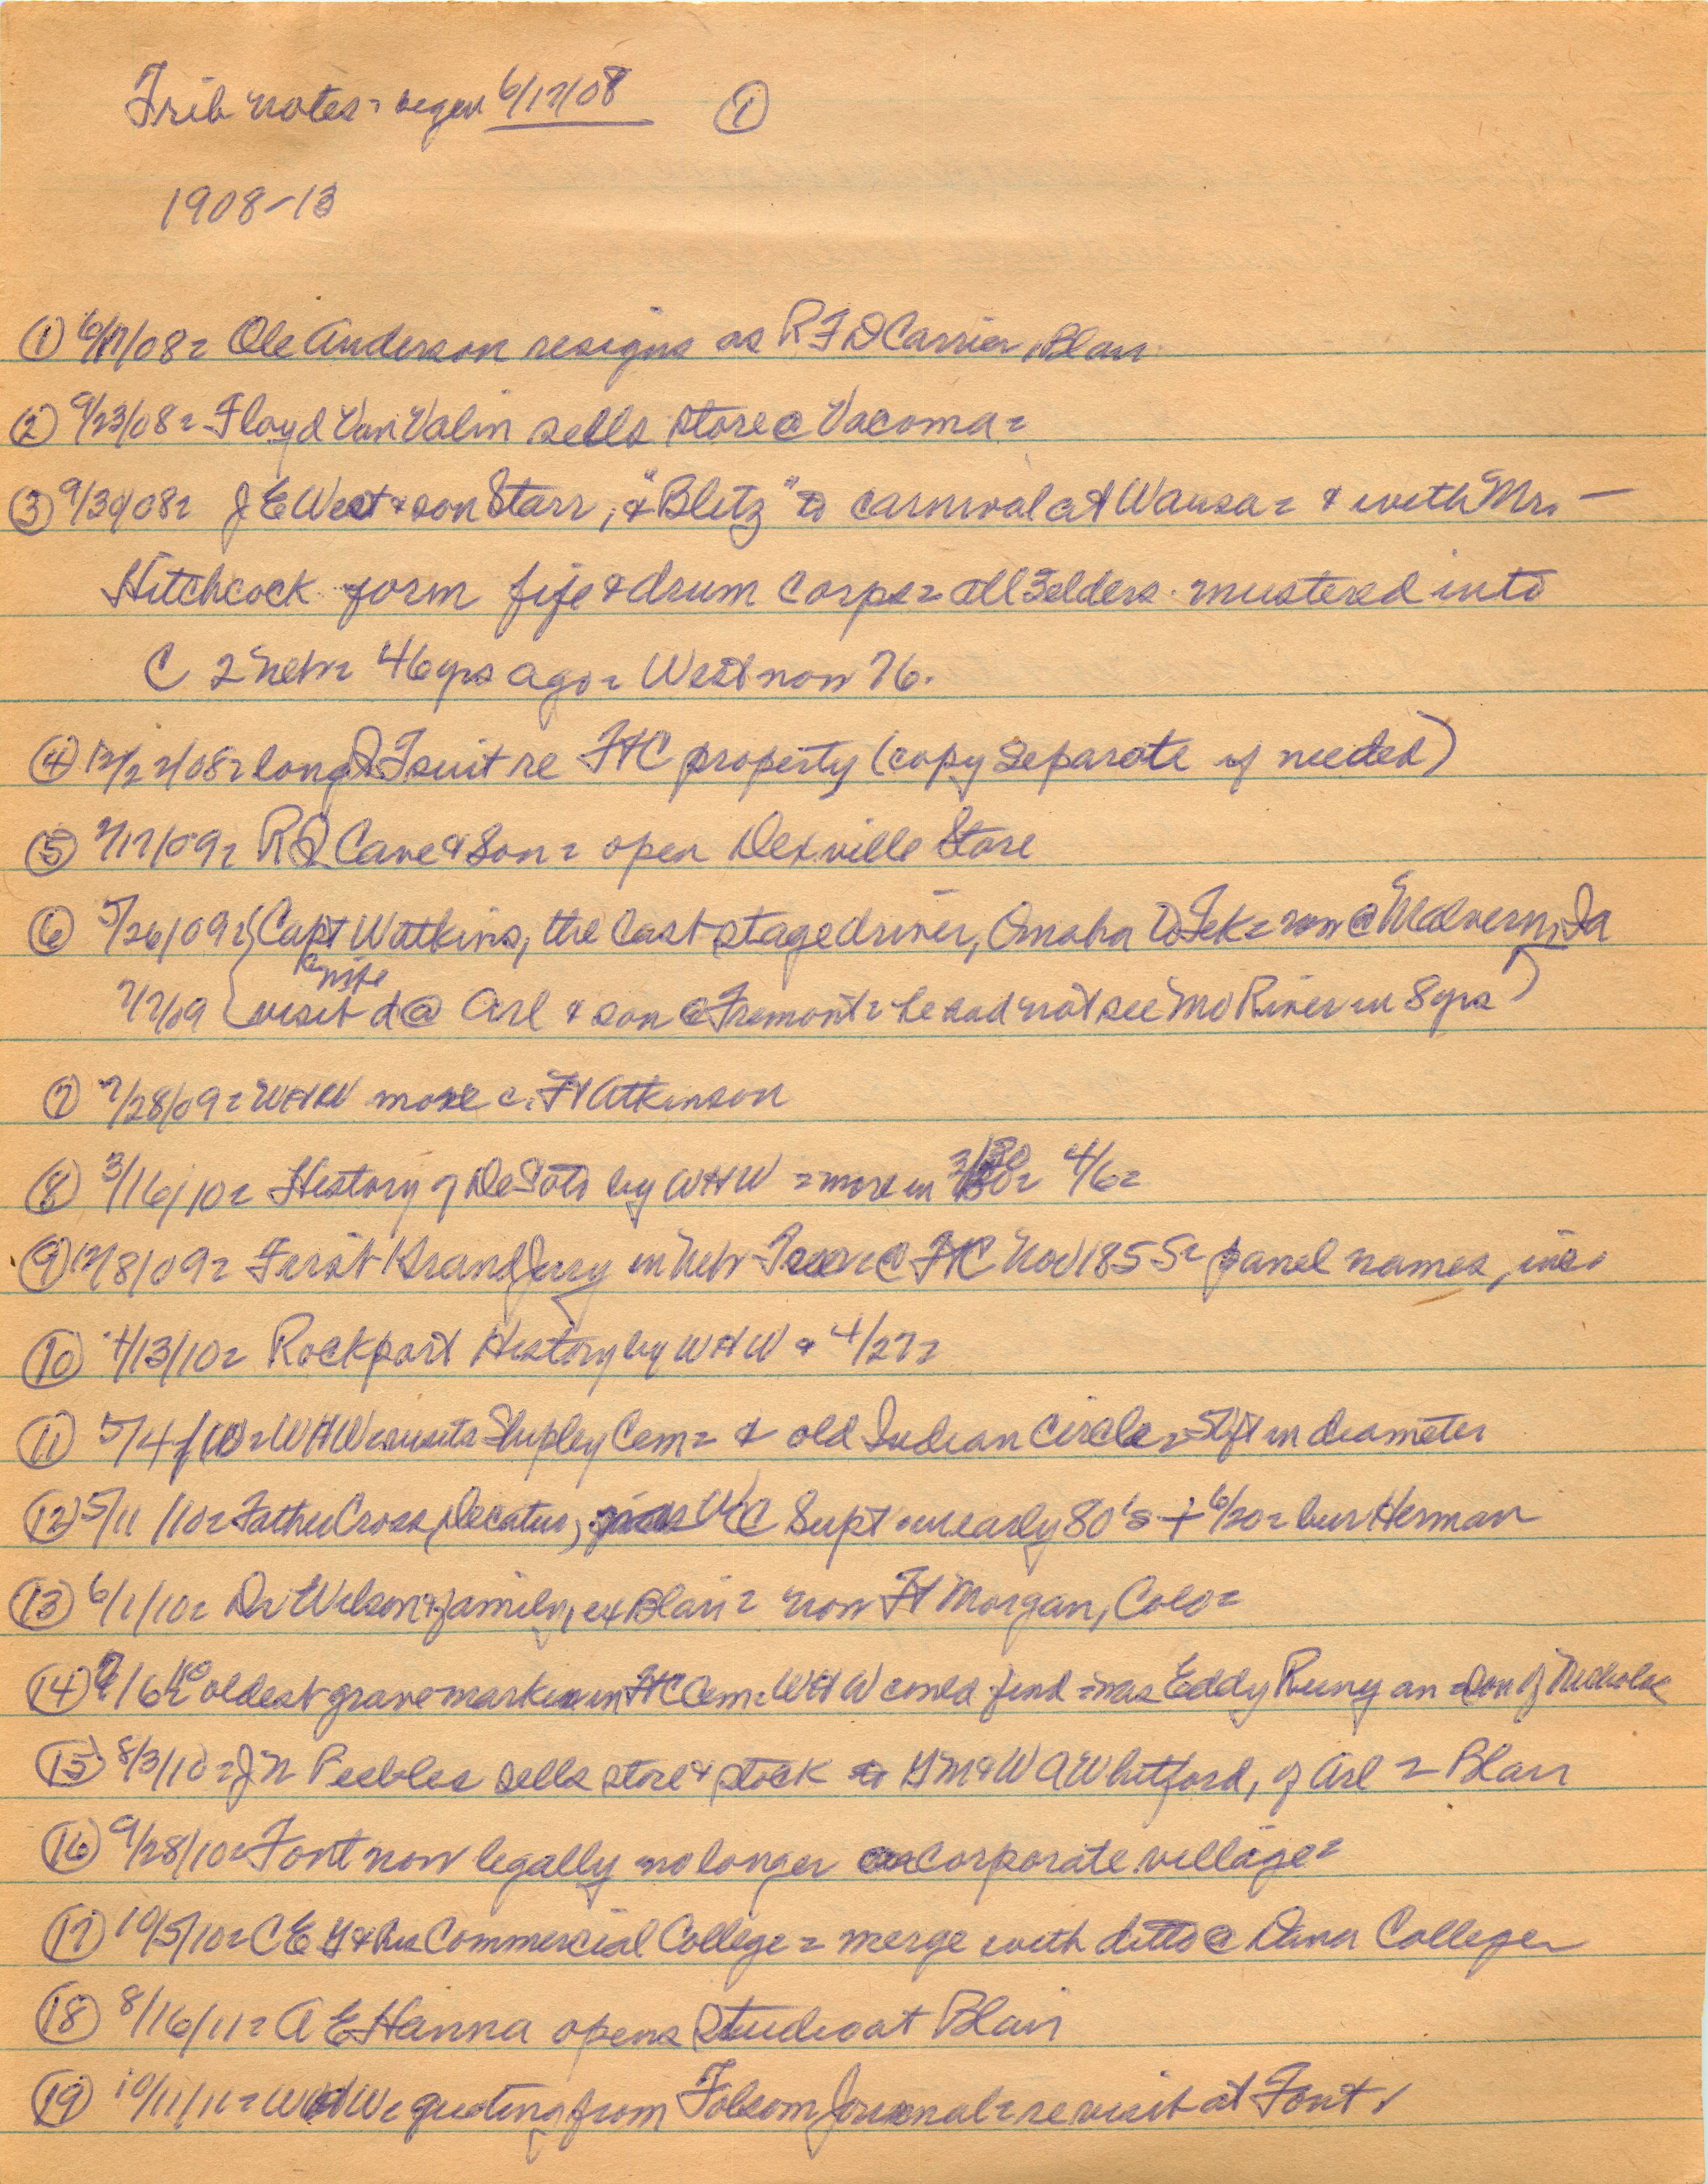 Trib notes = began 6/17/08 ①
1908-13
① 6/17/08 = Ole Anderson resigns as RFD Carrier, Blair
② 9/23/08 = Floyd Van Valin sells store @ Vacoma =
③ 9/30/08 = J E West & son Starr, & "Blitz" to carnival at Wausa = & with Mr. —
Hitchcock form fife & drum corps = all 3 elders mustered into
C 2 Neb = 46 yrs ago = West now 76.
④ 12/2/08 = long suit re FtC property (copy separate if needed)
⑤ 2/17/09 = Cave & Son = open Dexville Store
⑥ 5/26/09 = {Capt Watkins, the last stage driver, Omaha to Tek = now @ Malvern, Ia
& wife
7/7/09 {visit d @ Arl & son @ Fremont = he had not see Mo River in 8 yrs)
⑦ 7/28/09 = WHW more c. Ft Atkinson
⑧ 3/16/10 = History of DeSoto by WHW = more in 3/30 = 4/6 =
⑨ 12/8/09 = First Grand Jury in Neb Terr @ FtC Nov 1855 = panel names, inc.
⑩ 4/13/10 = Rockport History by WHW & 4/27 =
⑪ 5/4/10 = WHW visits Shipley Cem = & old Indian Circle = ft in diameter
⑫ 5/11/10 = Father Cross, Decatur, was WC Supt in early 80's + 6/20 = bur Herman
⑬ 6/1/10 = Dr Wilson & family, ex Blair = now Ft Morgan, Colo =
⑭ 7/6/10 = oldest grave marker in FtC Cem = WHW could find = was Eddy = son of Nicholas
⑮ 8/3/10 = J N Peebles sells store & stock to G M & W A Whitford, of Arl = Blair
⑯ 9/28/10 = Font now legally no longer a corporate village =
⑰ 10/5/10 = C E Commercial College = merge with ditto @ Dana College =
⑱ 8/16/11 = A E Hanna opens Studio at Blair
⑲ 10/11/11 = WHW = quoting from Folsom Journal = re visit at Font ✓